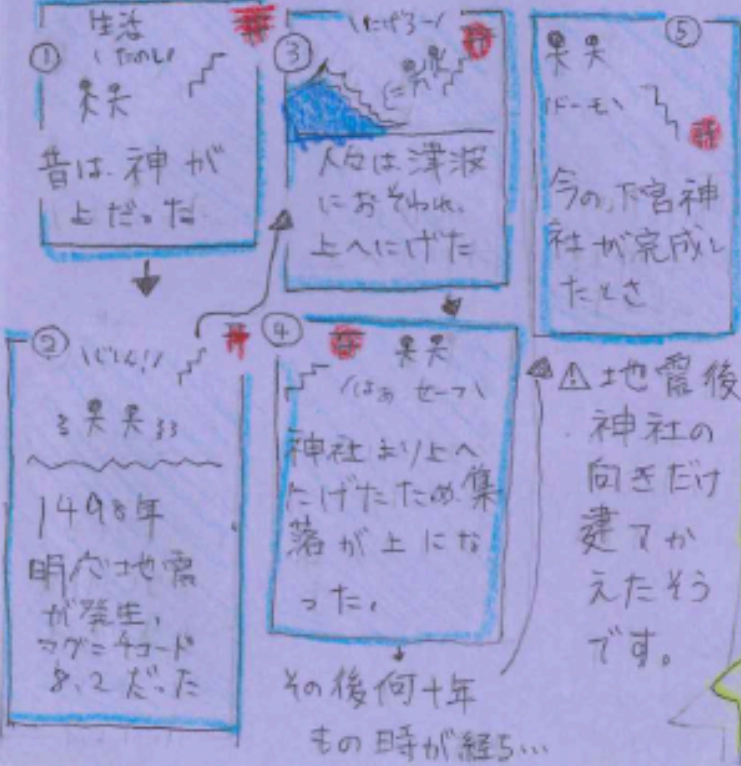 ①
生活
たのしい
昔は、神が
上だった
②
じしん!
1498年
明応地震
が発生、
マグニチュード
8.2だった
③
にげろー
人々は津波
におそわれ、
上へにげた
④
はぁ セーフ
神社より上へ
にげたため、集
落が上にな
った。
その後何十年
もの時が経ち…
⑤
ドーモ
今の下宮神
社が完成し
たとき
⚠地震後
神社の
向きだけ
建てか
えたそう
です。